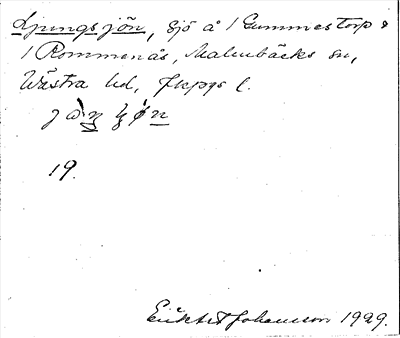 Ljungsjön, Sjö å 1 Gummestorp &
1 Rommenås, Malmbäcks sn,
Västra hd, Jkpgs l.
19.
Johansson 1929.